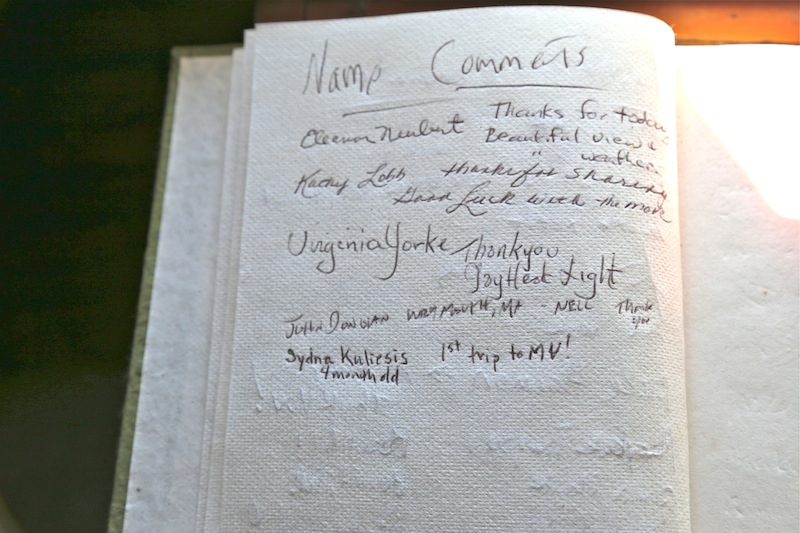 Name Commets
Eleanor Neubert Thanks for today
Beautiful view &
" weather.
Kathy Lobb thanks for sharing
Good Luck with the move
Virginia Yorke Thankyou
Gay Head Light
John Donovan Weymouth, MA - Nell Thank
you
Sydna Kuliesis 1st trip to MV!
4 month old